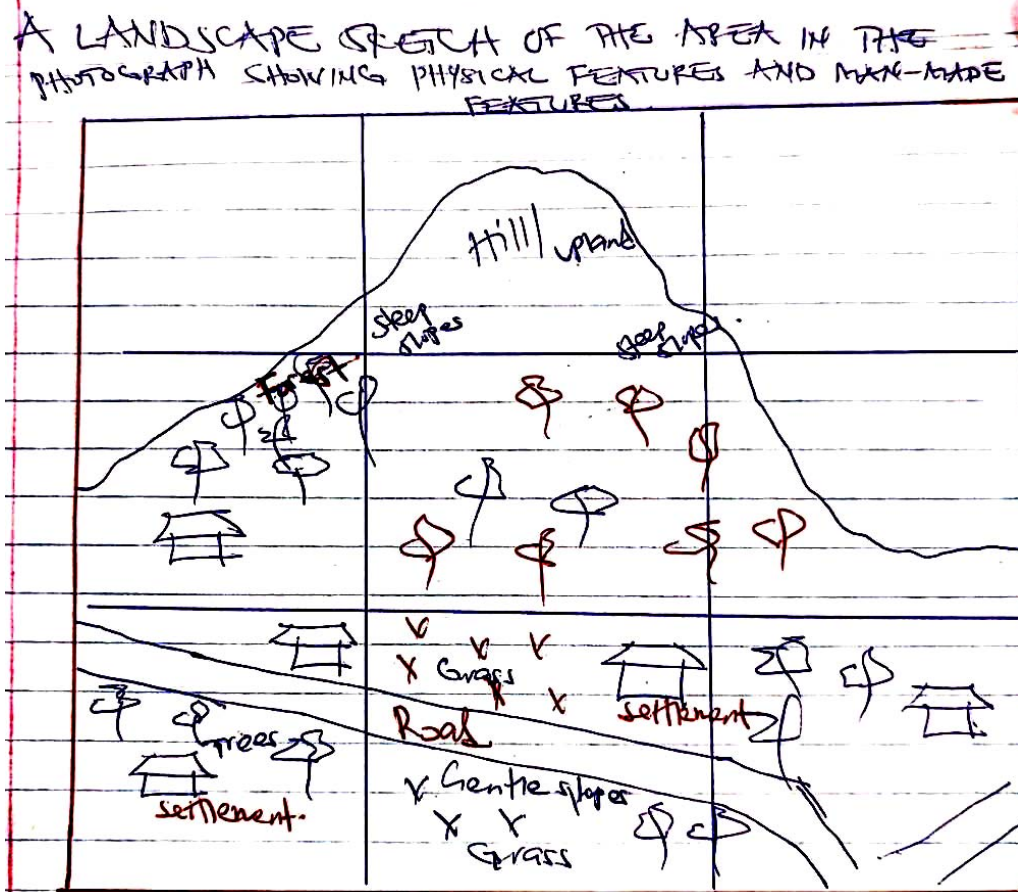 A LANDSCAPE SKETCH OF THE AREA IN THE
PHOTOGRAPH SHOWING PHYSICAL FEATURES AND MAN-MADE
FEATURES
Hill/upland
steep
slopes
steep slopes
Forest
Grass
Road
settlement
Trees
settlement.
Gentle slopes
Grass